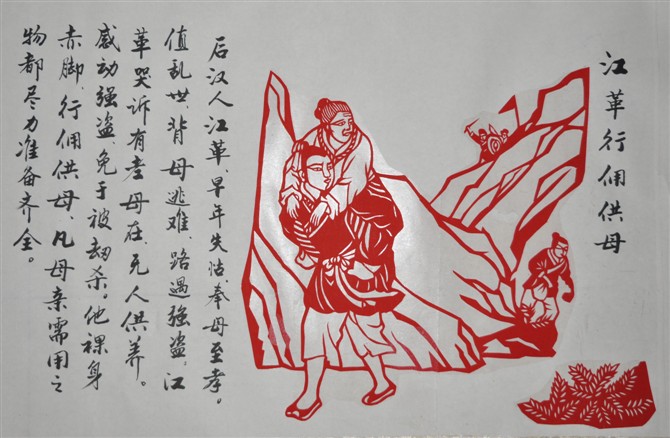 江革行佣供母
后汉人江革，早年失怙，奉母至孝。
值乱世，背母逃难，路遇强盗，江
革哭诉有老母在，无人供养。
感动强盗，免于被劫杀。他裸身
赤脚，行佣供母，凡母亲需用之
物都尽力准备齐全。